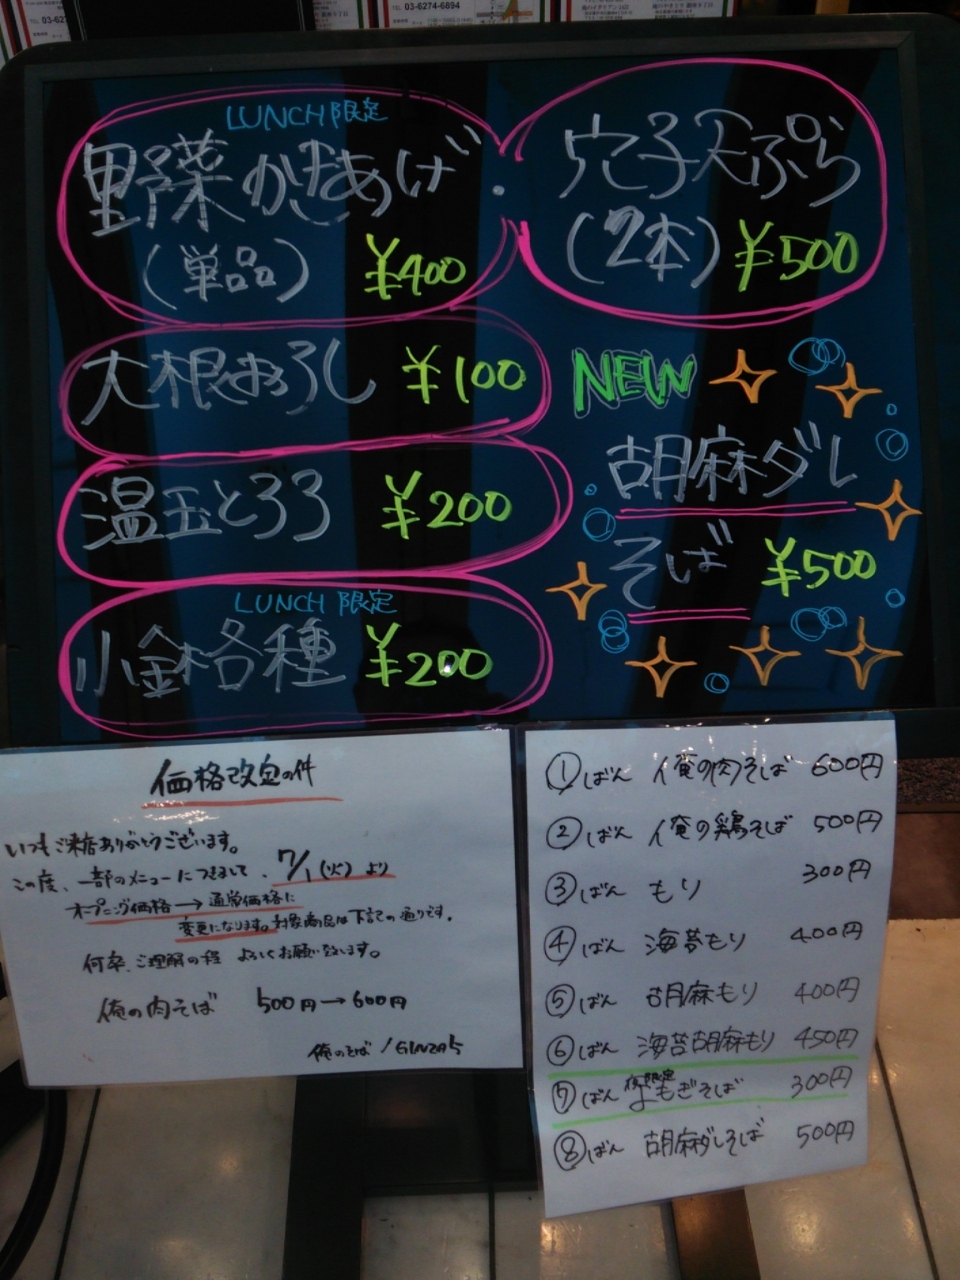 TEL 03-6274-6894
LUNCH 限定
野菜かきあげ
(単品) ¥400
穴子天ぷら
(2本) ¥500
大根おろし ¥100
温玉とろろ ¥200
LUNCH 限定
小金格種 ¥200
NEW
胡麻ダレ
そば ¥500
価格改定の件
いつもご来店ありがとうございます。
この度、一部のメニューにつきまして、7/1(火)より
オープニング価格→通常価格に
変更になります。対象商品は下記の通りです。
何卒、ご理解の程 よろしくお願い致します。
俺の肉そば 500円→600円
俺のそば / GINZA5
①ばん 俺の肉そば 600円
②ばん 俺の鶏そば 500円
③ばん もり 300円
④ばん 海苔もり 400円
⑤ばん 胡麻もり 400円
⑥ばん 海苔胡麻もり 450円
夜限定
⑦ばん よもぎそば 300円
⑧ばん 胡麻ダレそば 500円